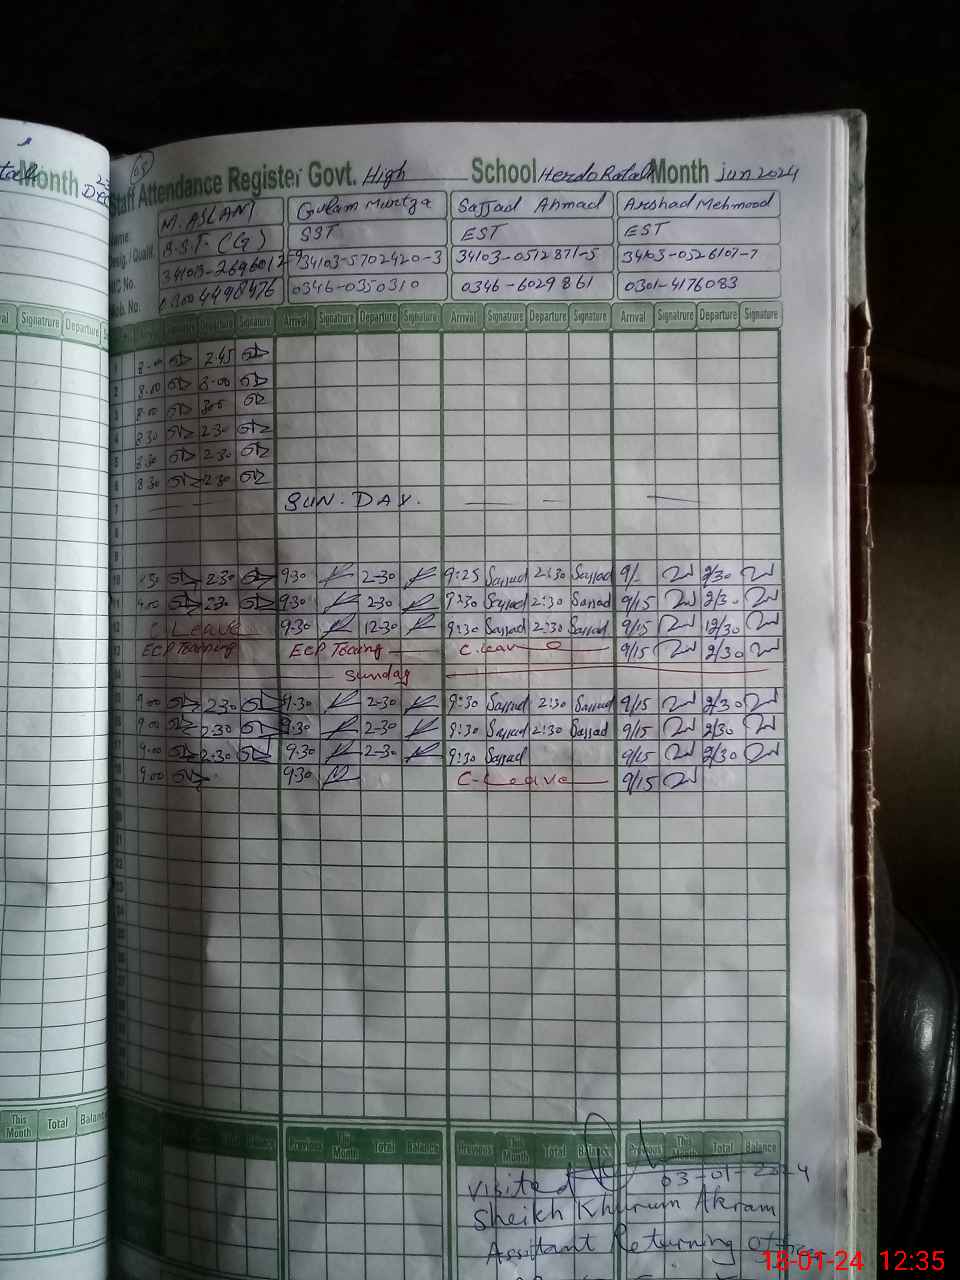 Month Dec
Staff Attendance Register Govt. High School Herdo Ratall Month Jun 2024
Name: M. ASLAM Gulam Murtza Sajjad Ahmad Arshad Mehmood
Desig./Qualif. S.S.T. (G) SST EST EST
NIC No. 34103-5702420-3 34103-0512871-5 34103-0526107-7
Mob. No. 03004498476 0346-0350310 0346-6029861 0301-4176083
Signatrure Departure
Departure Signature Arrival Signatrure Departure Signature Arrival Signatrure Departure Signature Arrival Signatrure Departure Signature
1 8-00 2-45
2 8-00 3-00
3 8-00 3-00
4 8-30 2-30
5 8-30 2-30
6 8-30 2-30
7 SUN.DAY.
8
9
10 2-30 9-30 2-30 9:25 Sajjad 2:30 Sajjad 9/ 2/30
11 9-00 2-30 9-30 2-30 9:30 Sajjad 2:30 Sajjad 9/15 2/30
12 C.Leave 9-30 12-30 9:30 Sajjad 2:30 Sajjad 9/15 12/30
13 ECP Training ECP C.leav 9/15 2/30
14 Sunday
15 9-00 2-30 9-30 2-30 9:30 Sajjad 2:30 Sajjad 9/15 2/30
16 9-00 2-30 9-30 2-30 9:30 Sajjad 2:30 Sajjad 9/15 2/30
17 9-00 2-30 9-30 2-30 9:30 Sajjad 9/15 2/30
18 9-00 9-30 C-Leave 9/15
21
22
23
This Month Total Balance
Previous This Month Total Balance Previous This Month Total Balance Previous This Month Total Balance
03-01-2024
Visited
Sheikh Khurum Akram
Assitant Returning Officer
18-01-24 12:35